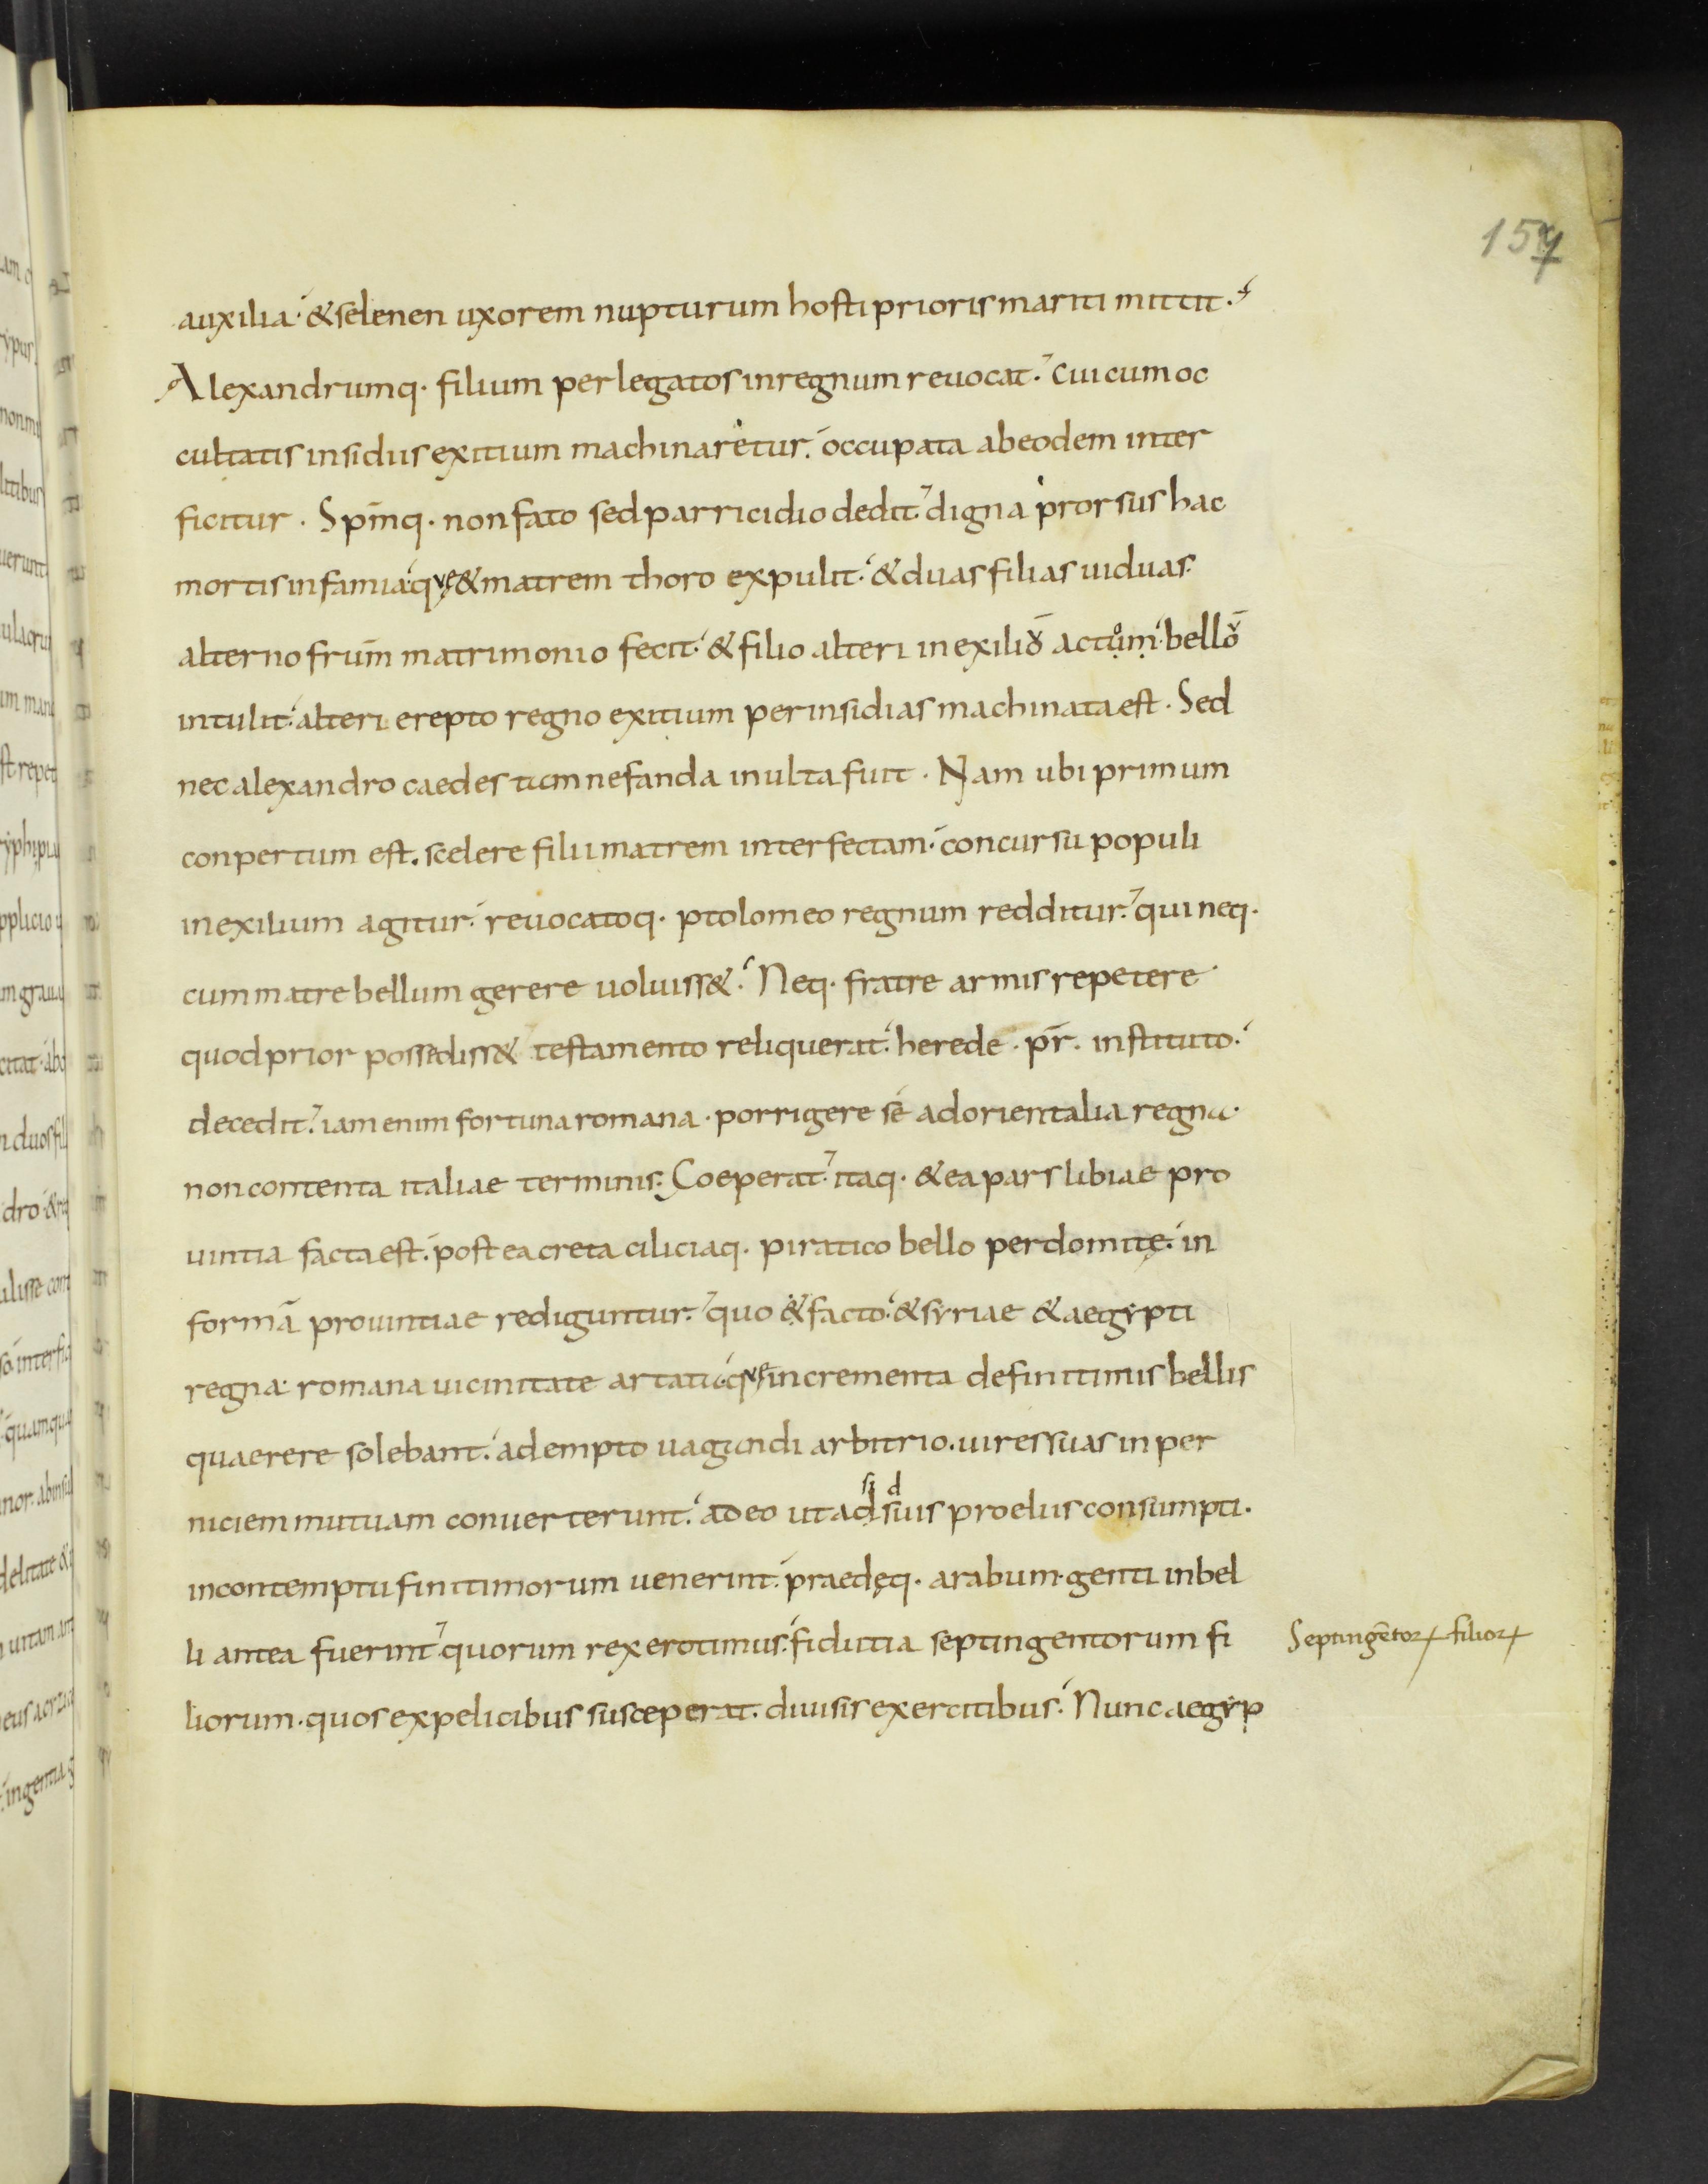 157
auxilia· & selenen uxorem nupturum hosti prioris mariti mittit·
Alexandrumq· filium per legatos in regnum reuocat· cui cum oc
cultatis insidiis exitium machinaretur· occupata ab eodem inter
ficitur· Sp̄mq· non fato sed parricidio dedit· digna prorsus hac
mortis infamia· quę & matrem thoro expulit· & duas filias uiduas
alterno fr̄um matrimonio fecit· & filio alteri in exiliŏ actům· bellŏ
intulit· alteri erepto regno exitium per insidias machinata est· Sed
nec alexandro caedes tum nefanda inulta fuit· Nam ubi primum
conpertum est· scelere filii matrem interfectam· concursu populi
in exilium agitur· reuocatoq· ptolomeo regnum redditur· qui neq·
cum matre bellum gerere uoluiss&· Neq· fratre armis repetere
quod prior possediss& testamento reliquerat· herede· pr̄· instituto·
decedit· iam enim fortuna romana· porrigere se ad orientalia regna·
non contenta italiae terminis· Coeperat· itaq· & ea pars libiae pro
uintia facta est· post ea creta ciliciaq· piratico bello perdomitę· in
formā prouintiae rediguntur· quo & facto· & syriae & aegypti
regna· romana uicinitate artati quę incrementa de finitimis bellis
quaerere solebant· adempto uagandi arbitrio· uires suas in per
niciem mutuam conuerterunt· adeo ut ad
si d
suis proeliis consumpti·
in contemptu finitimorum uenerint· praedęq· arabum· genti inbel
li antea fuerint· quorum rex erotimus· fidutia septingentorum fi
liorum· quos ex pelicibus susceperat· diuisis exercitibus· Nunc aegyp
Septingētorꝝ filiorꝝ